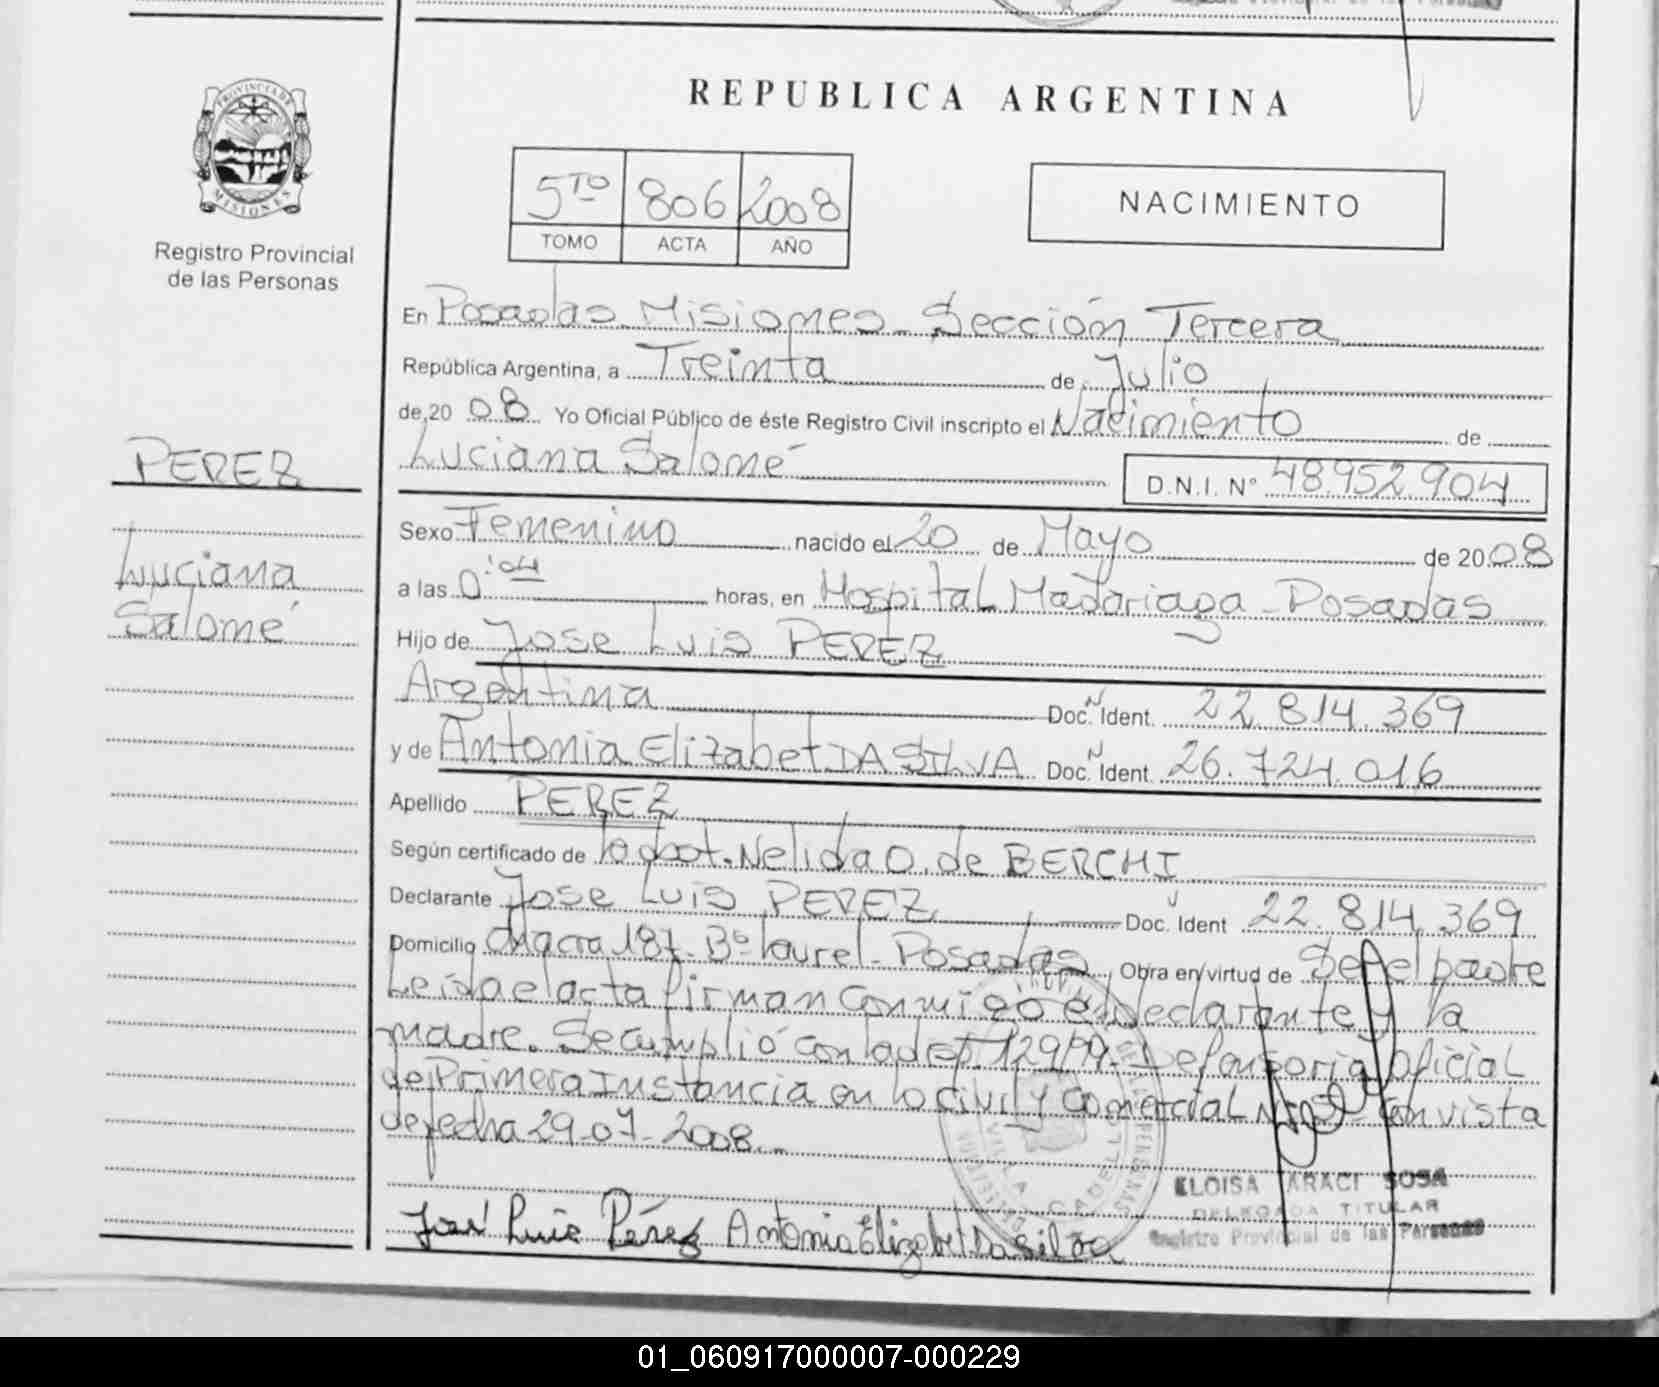 REPUBLICA ARGENTINA
PROVINCIA DE
MISIONES
Registro Provincial
de las Personas
5TO 806 2008
TOMO ACTA AÑO
NACIMIENTO
En Posadas Misiones - Sección Tercera
República Argentina, a Treinta de Julio
de 20 08 Yo Oficial Público de éste Registro Civil inscripto el Nacimiento de
Luciana Salomé D.N.I. N° 48.952.904
PEREZ
Luciana
Salomé
Sexo Femenino nacido el 20 de Mayo de 2008
a las 0:04 horas, en Hospital Madariaga - Posadas
Hijo de Jose Luis PEREZ
Argentina Doc. Ident. 22.814.369
y de Antonia Elizabet DA SILVA Doc. Ident. 26.724.016
Apellido PEREZ
Según certificado de la obst. Nelida O. de BERCHI
Declarante Jose Luis PEREZ Doc. Ident 22.814.369
Domicilio Chacra 187 - B° Laurel - Posadas Obra en virtud de Ser el padre
Leída el acta firman conmigo el Declarante y la
madre. Se cumplió con la 129/99. Defensoria Oficial
de Primera Instancia en lo Civil y Comercial con vista
de fecha 29-07-2008.-
José Luis Pérez Antonia Elizabet Da silva
ELOISA ARACI SOSA
DELEGADA TITULAR
Registro Provincial de las Personas
01_060917000007-000229